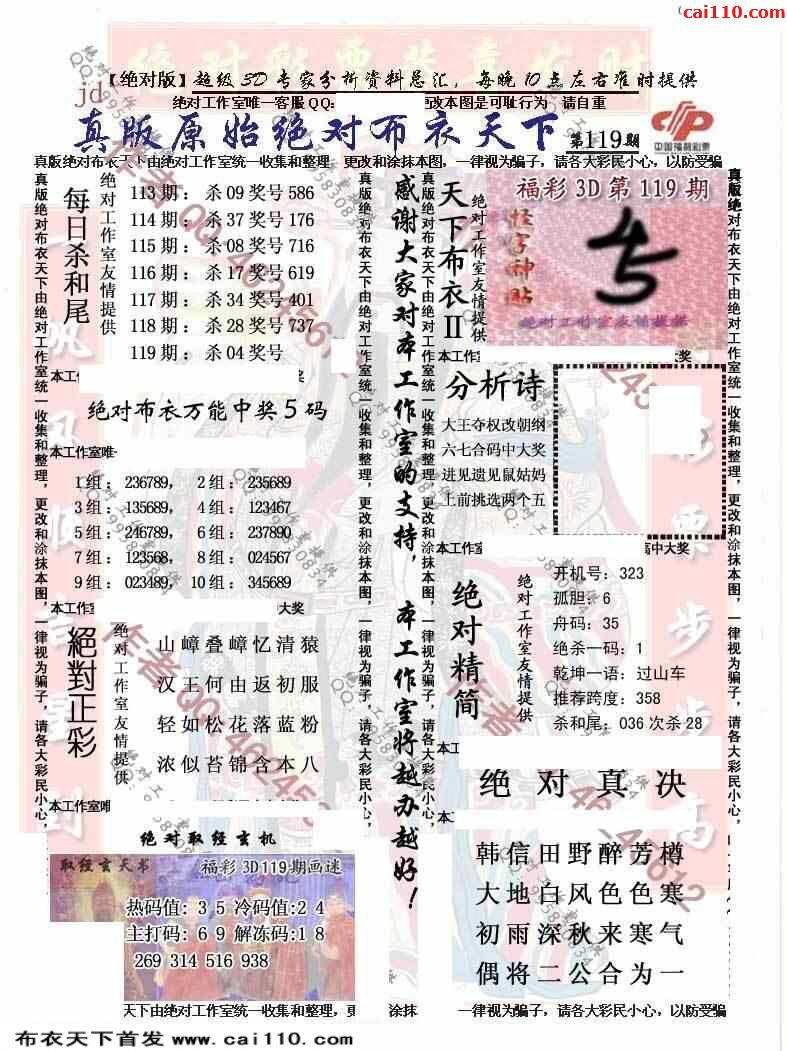 (cai110.com
【绝对版】超级3D专家分析资料总汇，每晚10点左右准时提供
jd
绝对工作室唯一客服QQ:
改本图是可耻行为 请自重
真版原始绝对布衣天下
第119期
中国福利彩票
真版绝对布衣天下由绝对工作室统一收集和整理 更改和涂抹本图，一律视为骗子，请各大彩民小心，以防受骗
每日杀和尾
绝对工作室友情提供
113期：杀09奖号586
114期：杀37奖号176
115期：杀08奖号716
116期：杀17奖号619
117期：杀34奖号401
118期：杀28奖号737
119期：杀04奖号
本工
奖
绝对布衣万能中奖5码
本工作室唯
1组：236789，2组：235689
3组：135689，4组：123467
5组：246789，6组：237890
7组：123568，8组：024567
9组：023489，10组：345689
本工作室
大奖
絕對正彩
绝对工作室友情提供
山嶂叠嶂忆清猿
汉王何由返初服
轻如松花落蓝粉
浓似苔锦含本八
本工作室唯
绝对取经玄机
取经玄天书
福彩3D119期画谜
热码值: 3 5 冷码值:2 4
主打码: 6 9 解冻码:1 8
269 314 516 938
真版绝对布衣天下由绝对工作室统一收集和整理，更改和涂抹本图，一律视为骗子，请各大彩民小心，
感谢大家对本工作室的支持，本工作室将越办越好！
真版绝对布衣天下由绝对工作室统一收集和整理，更改和涂抹本图，一律视为骗子，请各大彩民小心，
天下布衣II
绝对工作室友情提供
福彩3D第119期
怪字神贴
绝对工作室友情提供
本工作
大奖
分析诗
大王夺权改朝纲
六七合码中大奖
进见遗见鼠姑妈
上前挑选两个五
本工作室
高中大奖
绝对精简
绝对工作室友情提供
开机号：323
孤胆：6
舟码：35
绝杀一码：1
乾坤一语：过山车
推荐跨度：358
杀和尾：036次杀28
本工
绝对真决
本工
韩信田野醉芳樽
大地白风色色寒
初雨深秋来寒气
偶将二公合为一
天下由绝对工作室统一收集和整理，更
涂抹
一律视为骗子，请各大彩民小心，以防受骗
布衣天下首发 www.cai110.com